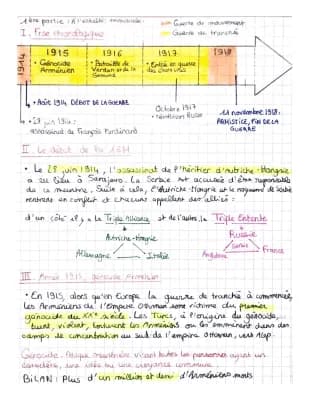 1ère partie : A l'échelle mondiale.
Guerre de mouvement
Guerre de tranché
I. Frise chronologique
1914
1915
• Génocide Arménien
1916
• Bataille de Verdun et de la Somme
1917
• Entrée en guerre des états unis
1918
• Août 1914, DÉBUT DE LA GUERRE
• 28 juin 1914 :
assassinat de François Ferdinand
Octobre 1917
• Révolution Russe
11 novembre 1918 :
ARMISTICE, FIN DE LA
GUERRE
II. Le début de la 1GM
• Le 28 juin 1914, l'assassinat de l'héritier d'Autriche-Hongrie
a eu lieu à Sarajevo. La Serbie est accusée d'être responsable
de ce meurtre. Suite à cela, l'Autriche-Hongrie et le royaume de Serbie
rentrent en conflit et chacuns appellent des alliés :
d'un côté il y a la Triple Alliance et de l'autre, la Triple Entente
Autriche-Hongrie
Allemagne
Italie
Russie
Serbie
Angleterre
France
III. Année 1915, génocide Arménien
• En 1915, alors qu'en Europe la guerre de tranché à commencé,
les Arméniens de l'Empire Ottoman sont victime du premier
génocide du XXe siècle. Les Turcs, à l'origine du génocide,
tuent, violent, torturent les Arméniens ou les emmènent dans des
camps de concentration au sud de l'empire ottoman, vers Alep.
Génocide : Attaque meurtrière visant toutes les personnes ayant un
caractère, une idée ou une croyance commune.
BILAN : Plus d'un million et demi d'Arméniens morts